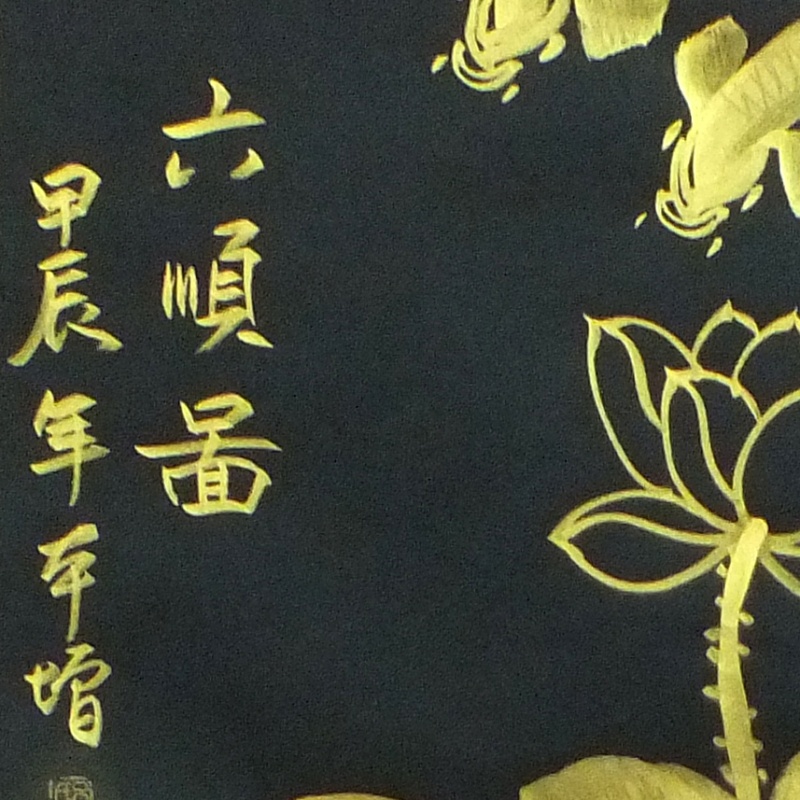 六順圖
甲辰年